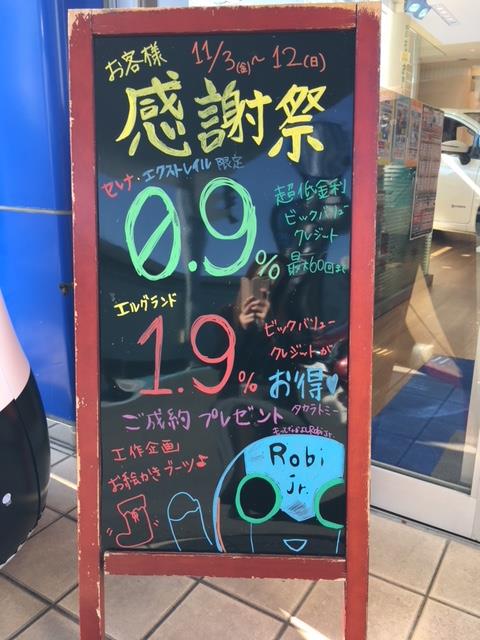 お客様
11/3(金)～12(日)
感謝祭
セレナ・エクストレイル 限定
0.9%
超低金利
ビックバリュー
クレジット
最大60回まで
エルグランド
1.9%
ビックバリュー
クレジットが
お得♡
ご成約 プレゼント
タカラトミー
Robi jr.
工作企画
お絵かきブーツ♪
Robi
jr.